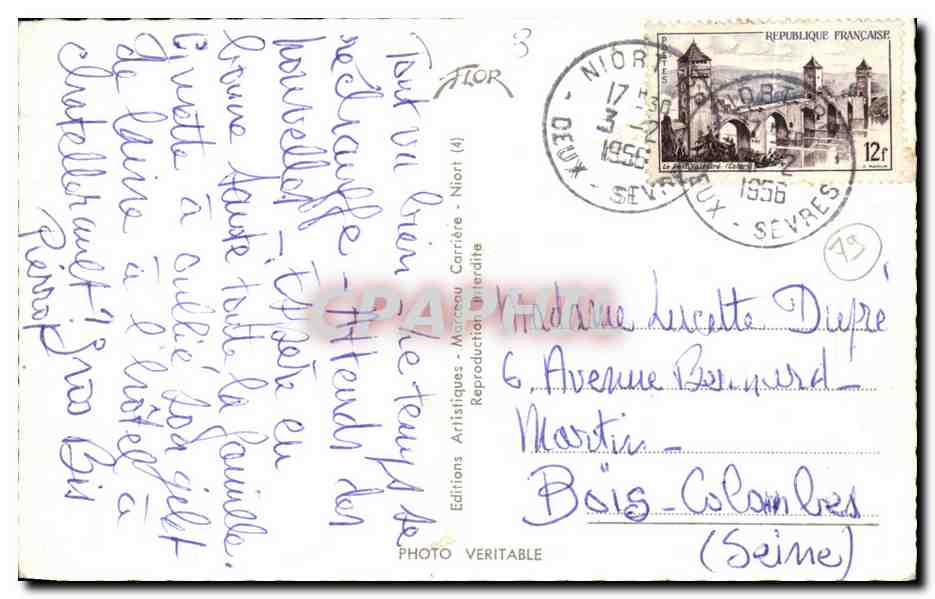 Tout va bien - le temps se
réchauffe - Attends des
nouvelles - Espère en
bonne santé toute la famille.
Ginette à oublié son gilet
de laine à l'hôtel à
Chatellerault. Gros Bis
Pierrot
FLOR
3
Editions Artistiques - Marceau Carrière - Niort (4)
Reproduction interdite
PHOTO VERITABLE
RÉPUBLIQUE FRANÇAISE
POSTES
12f
NIORT
17 H 30
1956
DEUX - SEVRES
NIORT
1956
DEUX - SEVRES
79
Madame Lucette Dupré
6, Avenue Bernard-
Martin -
Bois-Colombes
(Seine)
CPAPHIL